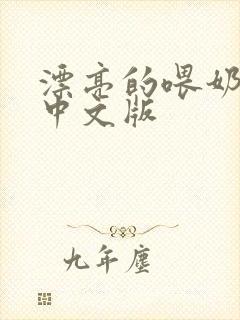 漂亮的喂奶
中文版
九年尘